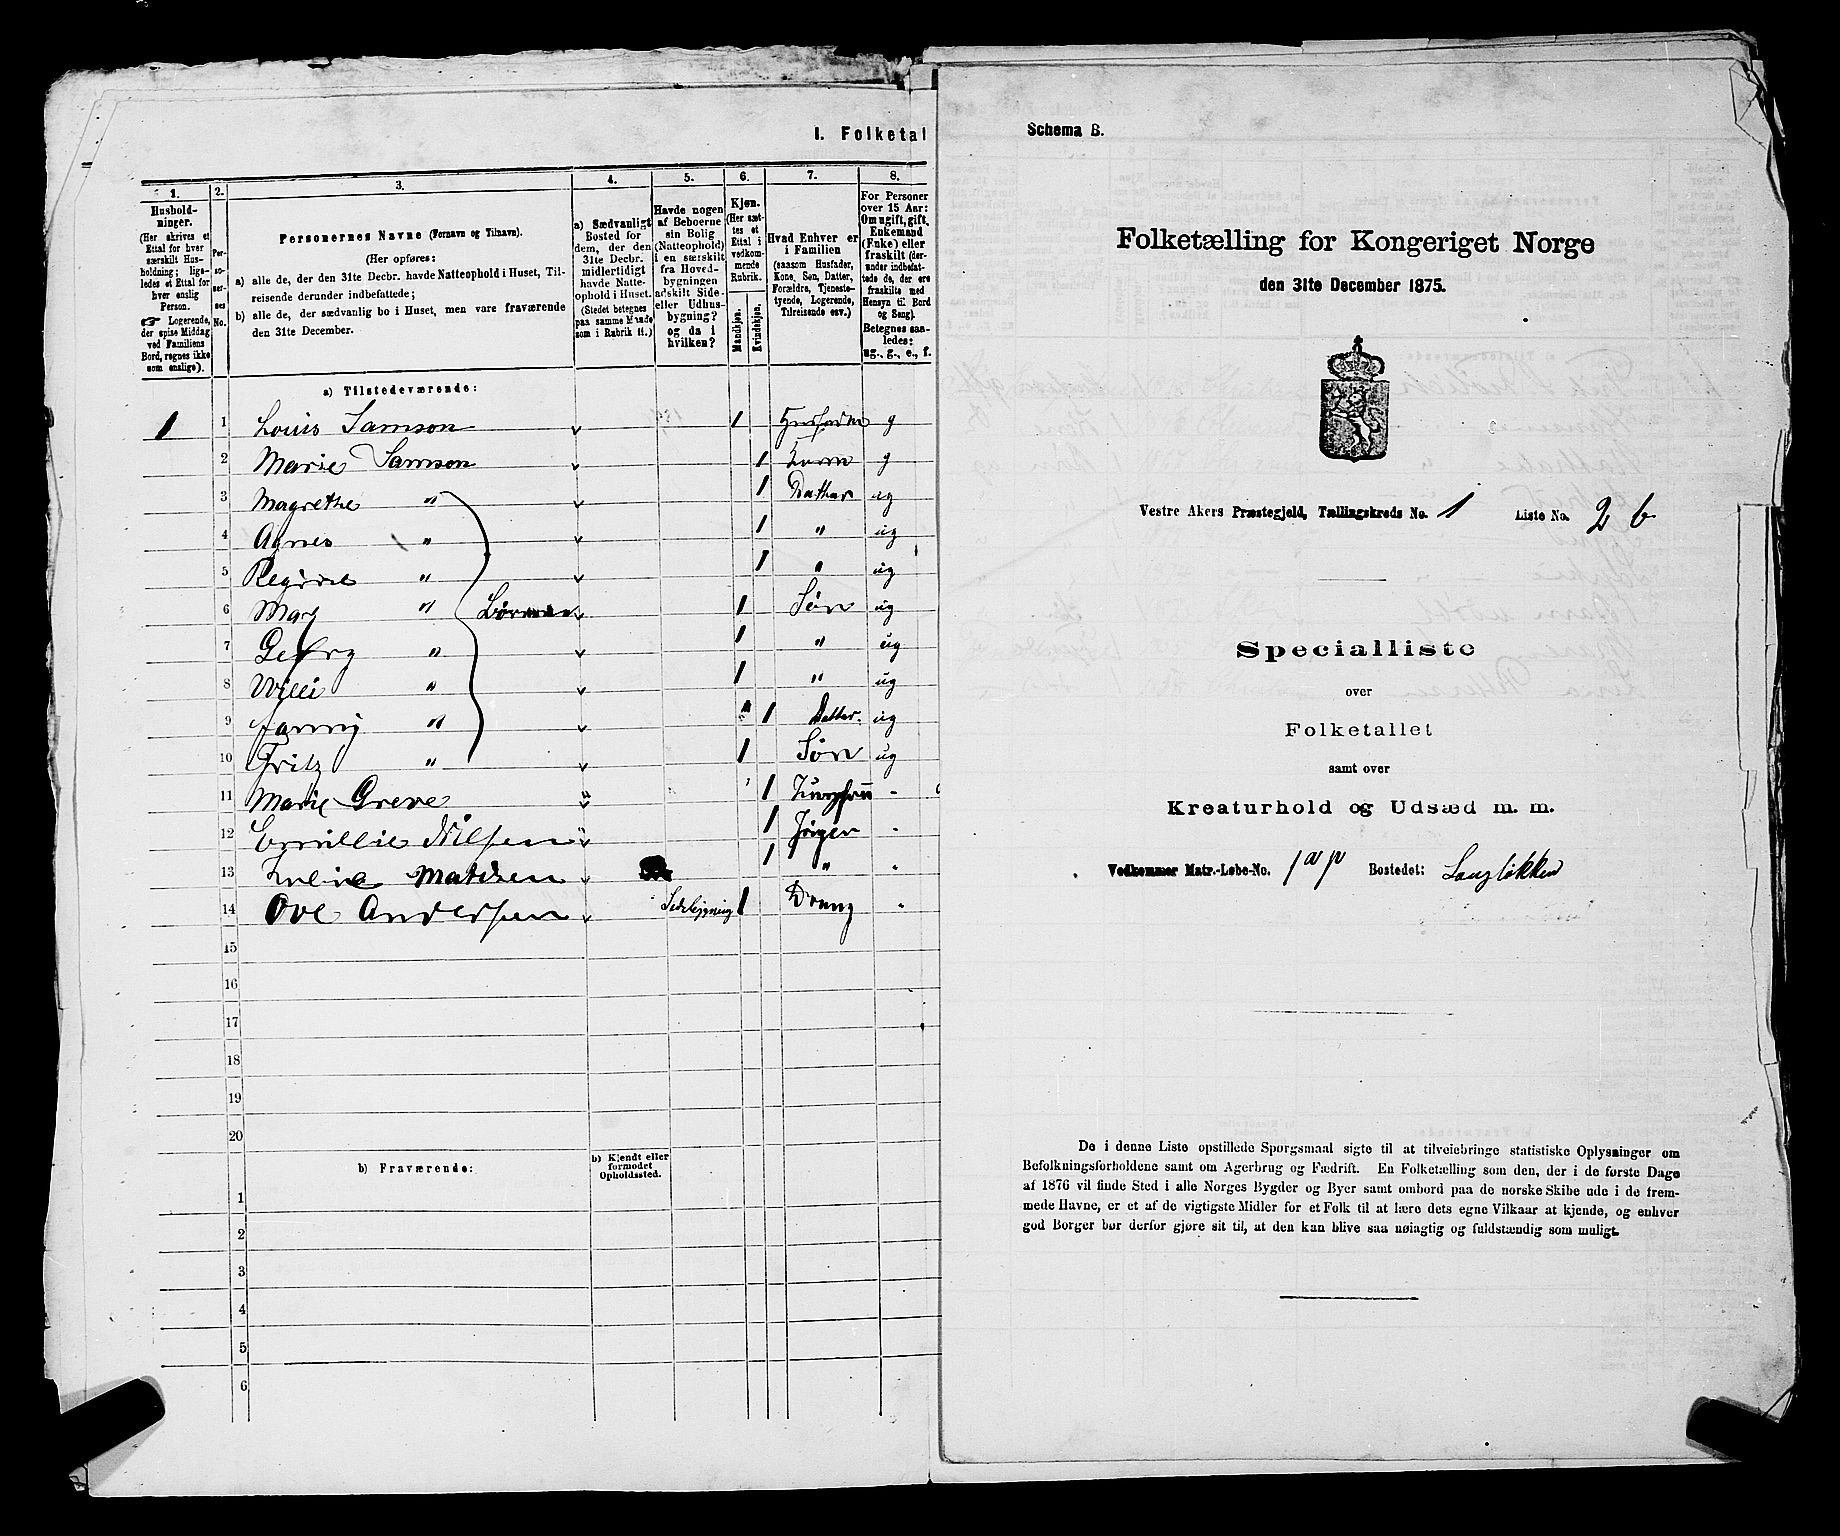 I. Folketal
1.
2.
3.
4.
5.
6.
7.
8.
Husholdninger.
(Her skrives et
Ettal for hver
særskilt Husholdning; ligeledes et Ettal for
hver enslig
Person.
☞ Logerende,
der spise Middag
ved Familiens
Bord, regnes ikke
som enslige).
Personernes No.
Personernes Navne (Fornavn og Tilnavn).
(Her opføres:
a) alle de, der den 31te Decbr. havde Natteophold i Huset, Tilreisende derunder indbefattede;
b) alle de, der sædvanlig bo i Huset, men vare fraværende
den 31te December.
a) Sædvanligt
Bosted for
dem, der den
31te Decbr.
midlertidigt
havde Natteophold i Huset.
(Stedet betegnes
paa samme Maade
som i Rubrik 11.)
Havde nogen
af Beboerne
sin Bolig
(Natteophold)
i en særskilt
fra Hovedbygningen
adskilt Side-
eller Udhusbygning?
og da i
hvilken?
Kjøn.
(Her sættes et
Ettal i
vedkommende
Rubrik.
Mandkjøn.
Kvindekjøn.
Hvad Enhver er
i Familien
(saasom Husfader,
Kone, Søn, Datter,
Forældre, Tjenestetyende, Logerende,
Tilreisende osv.)
For Personer
over 15 Aar:
Om ugift, gift,
Enkemand
(Enke) eller
fraskilt (derunder indbefattede de, der ere
fraskilte med
Hensyn til Bord
og Seng).
Betegnes saaledes:
ug., g., e., f.
a) Tilstedeværende:
1 1 Louis Samson 1 Husfader g
2 Marie Samson 1 Kone g
3 Magrethe " 1 Datter ug
4 Agnes " 1 " ug
5 Regine " 1 " ug
6 Marz " Børn 1 Søn ug
7 Georg " 1 " ug
8 Willi " 1 " ug
9 Fanny " 1 Datter. ug
10 Fritz " 1 Søn ug
11 Marie Greve 1 -
12 Emillie Nilsen 1 -
13 Matisen 1 " -
14 Ove Andersen 1 Dreng -
15
16
17
18
19
20
b) Fraværende:
b) Kjendt eller
formodet
Opholdssted.
1
2
3
4
5
6
Schema B.
Folketælling for Kongeriget Norge
den 31te December 1875.
Vestre Akers Præstegjeld, Tællingskreds No. 1 Liste No. 2 b
Specialliste
over
Folketallet
samt over
Kreaturhold og Udsæd m. m.
Vedkommer Matr.-Løbe-No. 1 a p Bostedet: Langløkken
De i denne Liste opstillede Spørgsmaal sigte til at tilveiebringe statistiske Oplysninger om
Befolkningsforholdene samt om Agerbrug og Fædrift. En Folketælling som den, der i de første Dage
af 1876 vil finde Sted i alle Norges Bygder og Byer samt ombord paa de norske Skibe ude i de fremmede Havne, er et af de vigtigste Midler for et Folk til at lære dets egne Vilkaar at kjende, og enhver
god Borger bør derfor gjøre sit til, at den kan blive saa nøiagtig og fuldstændig som muligt.